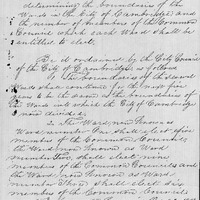 determining the boundaries of the
Wards in the City of Cambridge and
the number of members of the Common
Council which each Ward shall be
entitled to elect.
Be it ordained by the City Council
of the City of Cambridge, as follows
The boundaries of the several
Wards shall continue
to be the same as the boundaries of
the Wards into which the City of Cambridge
now divided.
The Ward now known as
Ward number One shall elect five
members of the Common Council,
the Ward now known as Ward
number Two, shall elect nine
members of the Common Council and
the Ward now known as Ward
number Three shall elect six
members of the Common Council